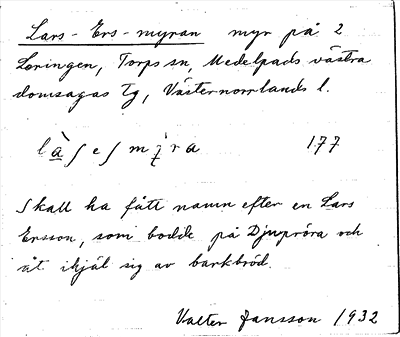 Lars-Ers-myran myr på 2
Loringen, Torps sn, Medelpads västra
domsagas tg, Västernorrlands l.
177
Skall ha fått namn efter en Lars
Ersson, som bodde på Djupröra och
åt ihjäl sig av barkbröd.
Valter Jansson 1932